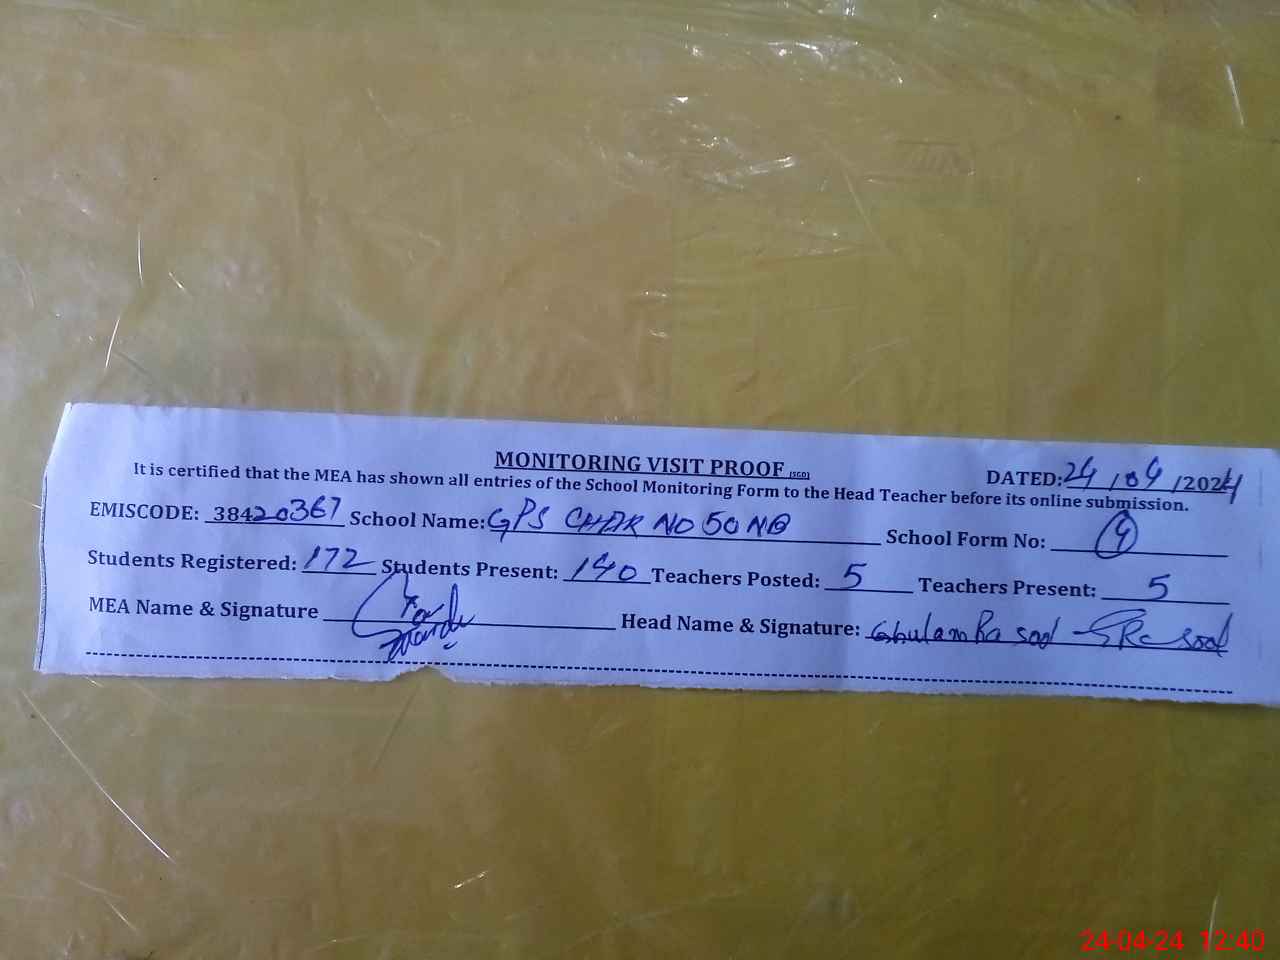 MONITORING VISIT PROOF (SGD)
DATED: 24/04/2024
It is certified that the MEA has shown all entries of the School Monitoring Form to the Head Teacher before its online submission.
EMISCODE: 38420367 School Name: GPS CHAK NO 50 NB School Form No: 4
Students Registered: 172 Students Present: 140 Teachers Posted: 5 Teachers Present: 5
MEA Name & Signature Head Name & Signature: Ghulam Rasool GRasool
24-04-24 12:40